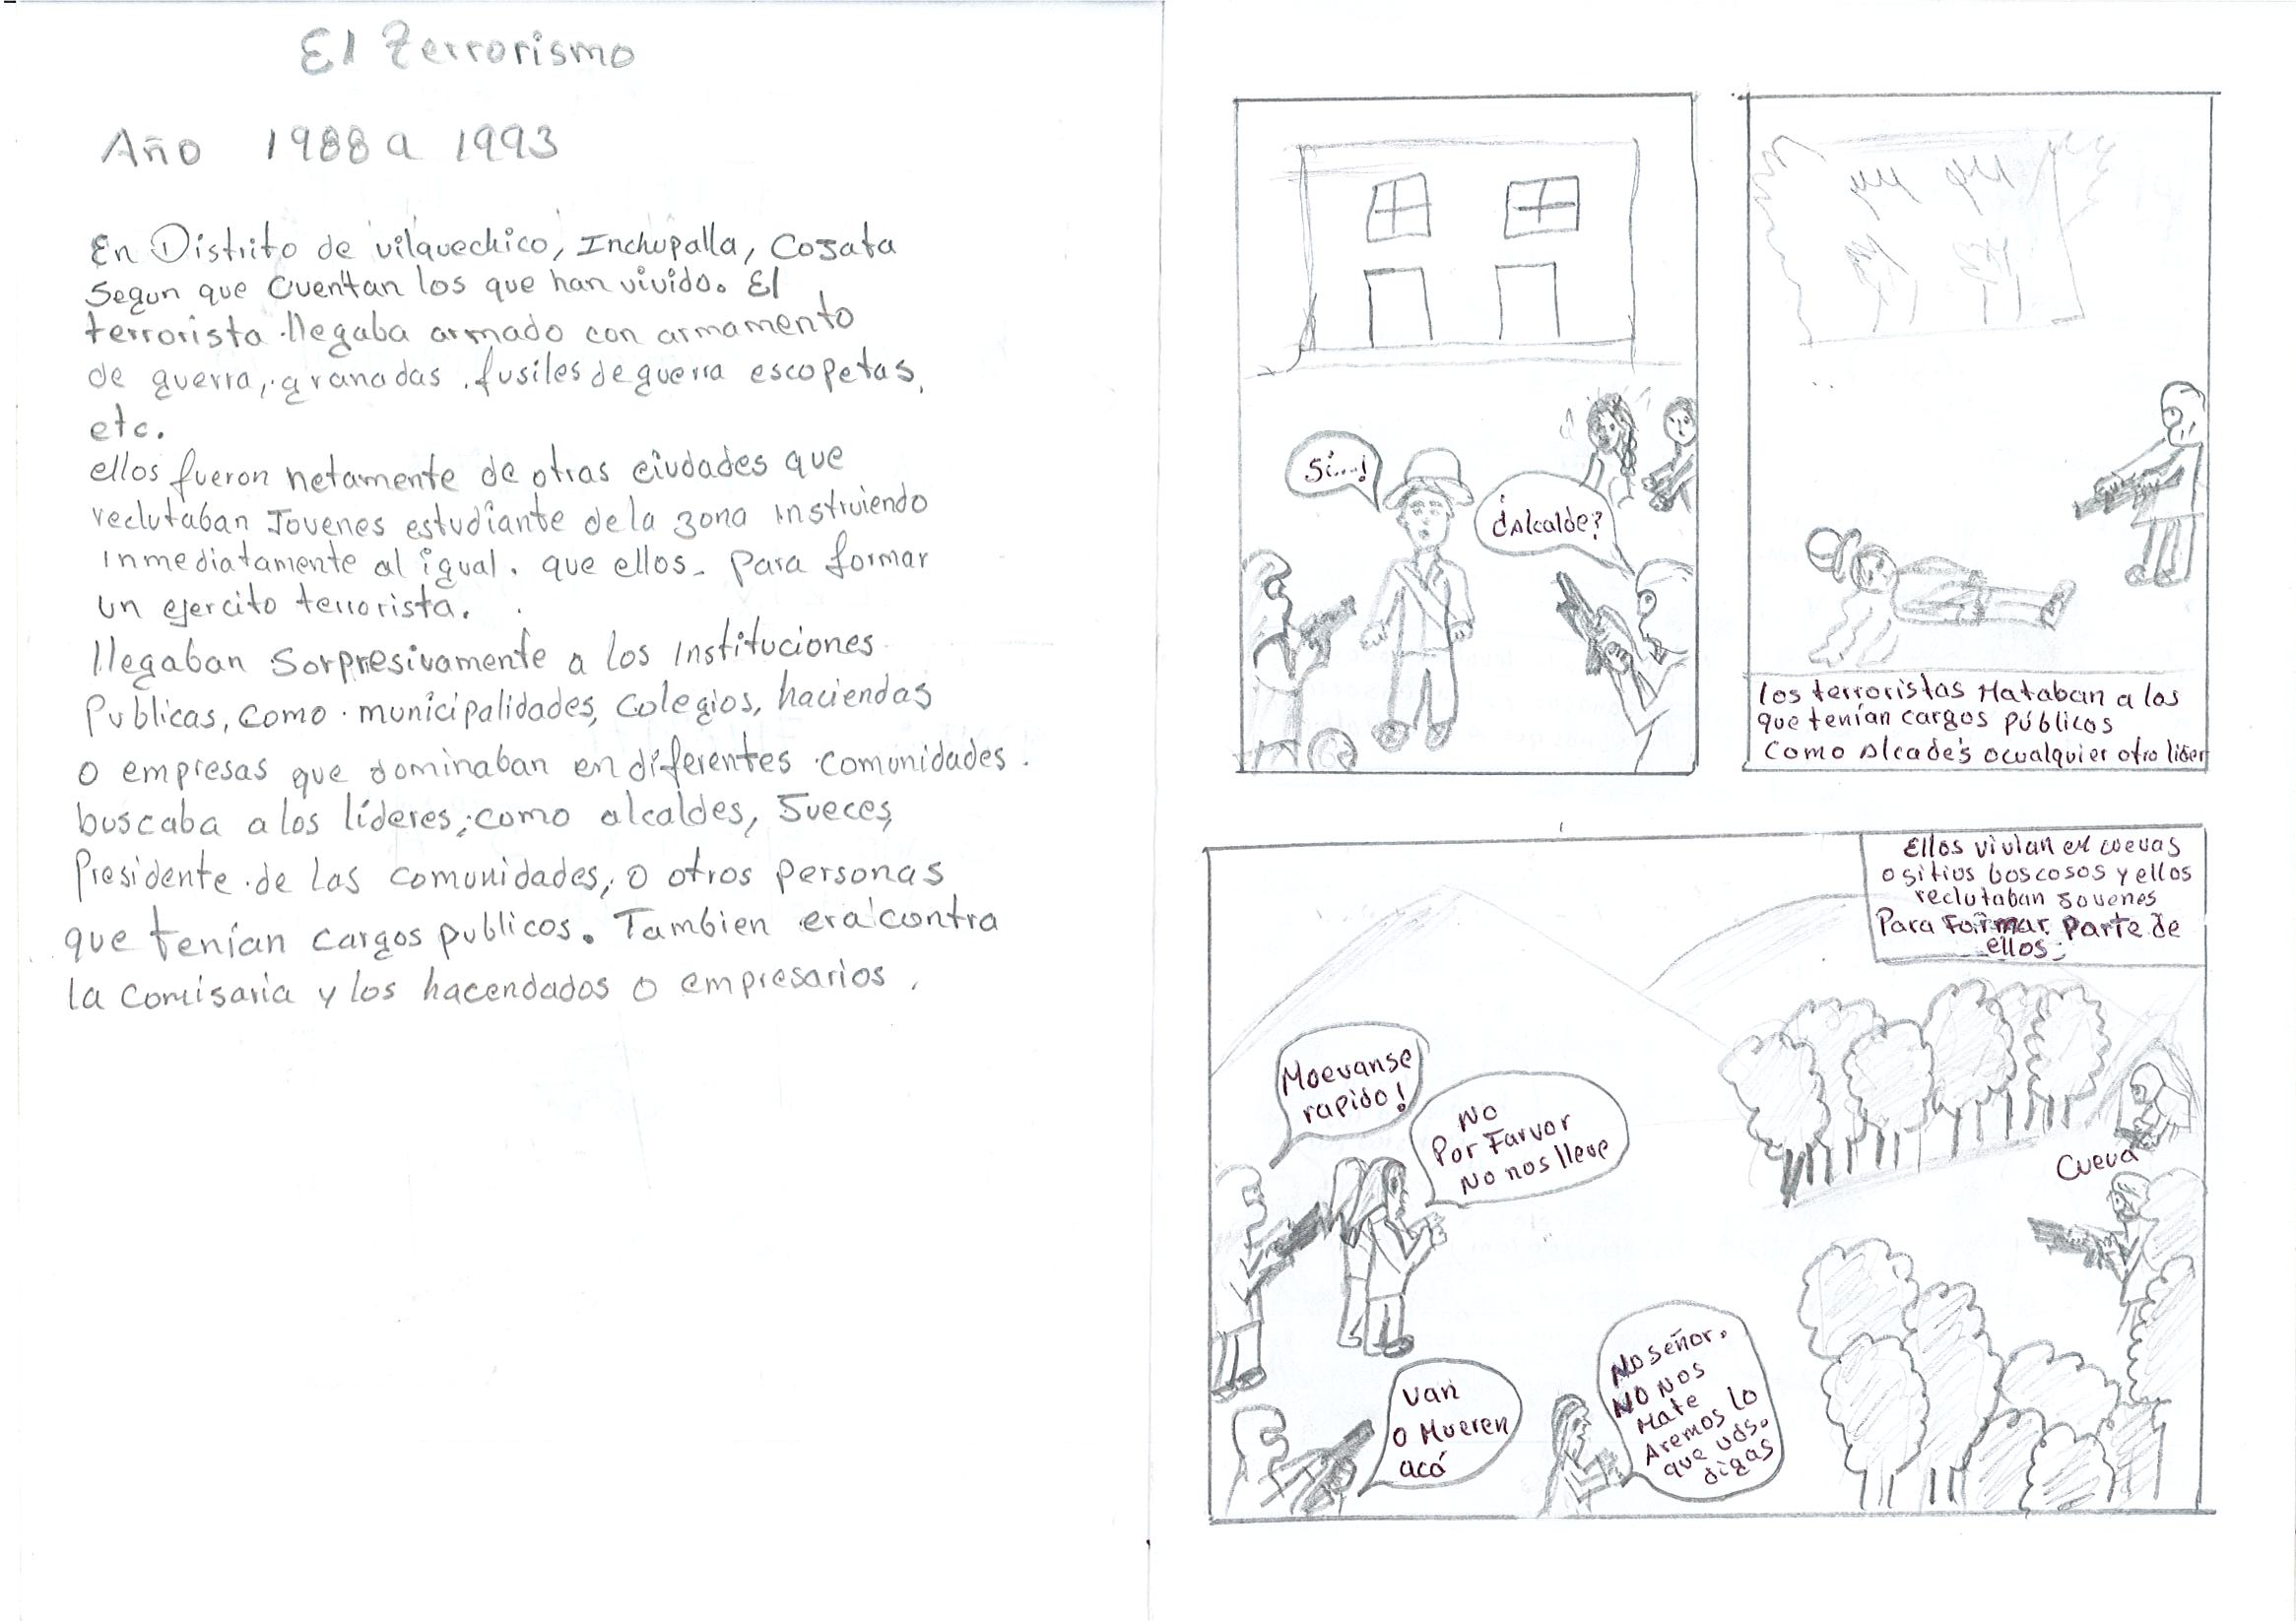 El terrorismo
Año 1988 a 1993
En Distrito de vilquechico, Inchupalla, Cojata
Segun que cuentan los que han vivido. El
terrorista llegaba armado con armamento
de guerra, granadas, fusiles de guerra escopetas,
etc.
ellos fueron netamente de otras ciudades que
reclutaban Jovenes estudiante de la zona instruiendo
inmediatamente al igual. que ellos - para formar
un ejercito terrorista.
llegaban sorpresivamente a los instituciones
Publicas, como municipalidades, colegios, haciendas
o empresas que dominaban en diferentes comunidades.
buscaba a los líderes; como alcaldes, Jueces,
Presidente de las comunidades, o otros personas
que tenían cargos publicos. Tambien era contra
la comisaria y los hacendados o empresarios.
Si...!
¿Alcalde?
los terroristas Mataban a los
que tenían cargos públicos
como Alcades o cualquier otro lider
Ellos vivian en cuevas
o sitios boscosos y ellos
reclutaban Jovenes
Para Formar Parte de
ellos.
Moevanse
rapido!
No
Por Farvor
No nos lleve
Cueva
Van
o Mueren
acá
No señor.
No nos
Mate
Aremos lo
que uds.
digas